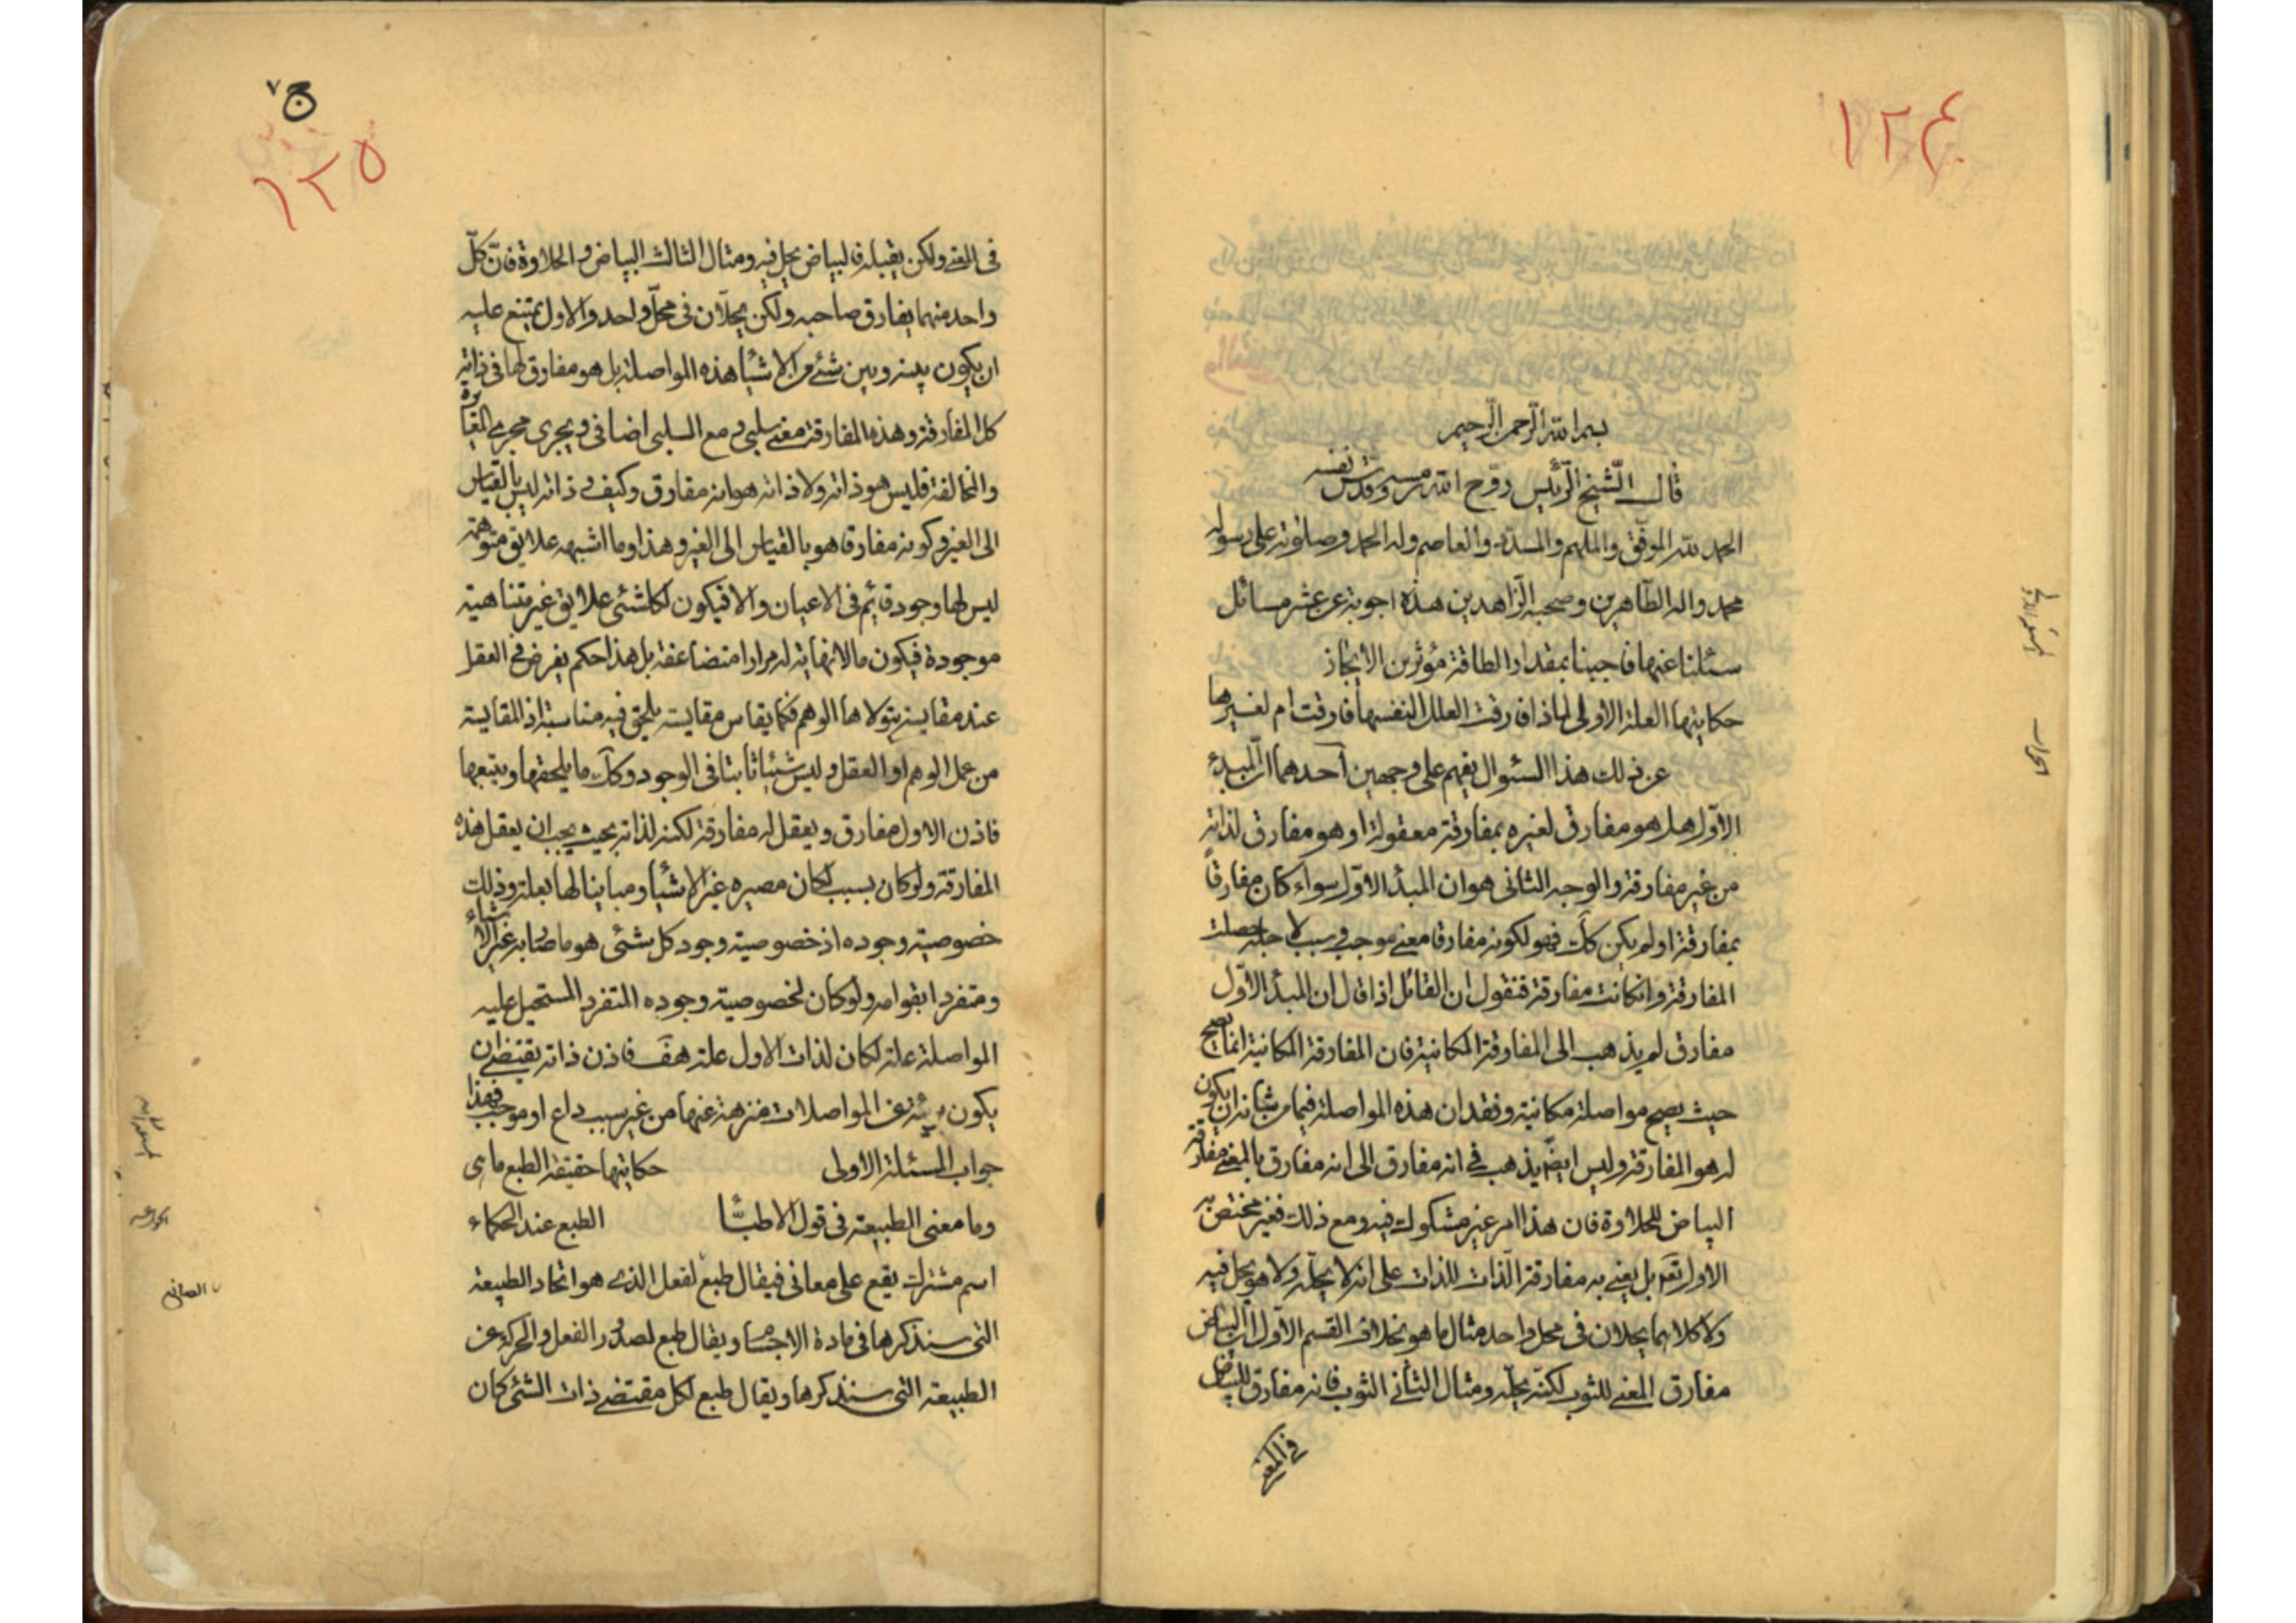 ١٢٤
بسم الله الرحمن الرحيم
قال الشيخ الرئيس روّح الله رمسه وقدّس نفسه
الحمد لله الموفق والملهم والمسدّد والعاصم وله الحمد وصلوته على رسوله
محمد واله الطّاهرين وصحبه الزّاهدين هذه اجوبة عن عشر مسائل
سئلنا عنها فاجبنا بمقدار الطاقة مؤثرين الايجاز
حكايتها العلة الاولى لماذا فارقت العلل النفسها فارقت ام لغيرها
عن ذلك هذا السئوال يفهم على وجهين احدهما انّ المبدء
الاوّل هل هو مفارق لغيره بمفارقة معقولة او هو مفارق لذاته
من غير مفارقة والوجه الثانى هو ان المبدأ الاوّل سواء كان مفارقاً
بمفارقة او لم يكن كك فهو لكونه مفارقا معنى موجب وسبب لاجله حصلت
المفارقة وانكانت مفارقة فنقول ان القائل اذا قال ان المبدأ الاوّل
مفارق لم يذهب الى المفارقة المكانية فان المفارقة المكانية انما يصح
حيث يصح مواصلة مكانية وفقدان هذه المواصلة فيما من شانه ان يكون
له هو المفارقة وليس ايضّ يذهب فى انه مفارق الى انه مفارق بالمعنى مفارقة
البياض للحلاوة فان هذا امر غير مشكوك فيه ومع ذلك فغير مختص به
الاول تعَ بل يعنى به مفارقة الذات للذات على انه لا يحلّه ولا هو يحل فيه
ولا كلاهما يحلان فى محل واحد مثال ما هو بخلاف القسم الاول انّ البياض
مفارق المعنى للثوب لكنّه يحلّه ومثال الثانى الثوب فانه مفارق للبياض
فى المعنى
الجواب
ج ٧
١٢٥
فى المعنى ولكن يقبله فالبياض يحل فيه ومثال الثالث البياض والحلاوة فانّ كلّ
واحد منهما يفارق صاحبه ولكن يحلّان فى محلّ واحد والاول يمتنع عليه
ان يكون بينه وبين شئ من الاشيا هذه المواصلة بل هو مفارق لها فى ذاته
كل المفارقة وهذه المفارقة معنى سلبى ومع السلبى اضافى ويجرى مجرى المغايرة
والمخالفة فليس هو ذاته ولا ذاته هو انه مفارق وكيف و ذاته ليس بالقياس
الى الغير وكونه مفارقا هو بالقياس الى الغير وهذا وما اشبهه علايق متوهمة
ليس لها وجود قائم فى الاعيان والا فيكون لكل شئى علايق غير متناهية
موجودة فيكون ما لا نهاية له مرارا متضاعفة بل هذا حكم يفرض فى العقل
عند مقايسة يتولاها الوهم فكما يقاس مقايسة يلحق فيه مناسبة اذ المقايسة
من عمل الوهم او العقل وليس شيئا ثابتا فى الوجود وكك ما يلحقها ويتبعها
فاذن الاول مفارق ويعقل له مفارقة لكنه لذاته بحيث يجب ان يعقل هذه
المفارقة ولو كان بسبب لكان مصيره غير الاشيا ومباينا لها بعلة وذلك
خصوصية وجوده اذ خصوصية وجود كل شئى هو ما صار به غير الاشياء
ومتفردا بقوامه ولو كان لخصوصية وجوده المتفرد المستحيل عليه
المواصلة علة لكان لذات الاول علة هف فاذن ذاته يقتضى ان
يكون بريئة عن المواصلات منزهة عنها من غير سبب داع او موجب فهذا
جواب المسئلة الاولى حكايتها حقيقة الطبع ما هى
وما معنى الطبيعة فى قول الاطبّا الطبع عند الحكماء
اسم مشترك يقع على معانى فيقال طبع لفعل الذى هو اتحاد الطبيعة
التى سنذكرها فى مادة الاجسا ويقال طبع لصدور الفعل والحركة عن
الطبيعة التى سنذكرها ويقال طبع لكل مقتضى ذات الشئى كان